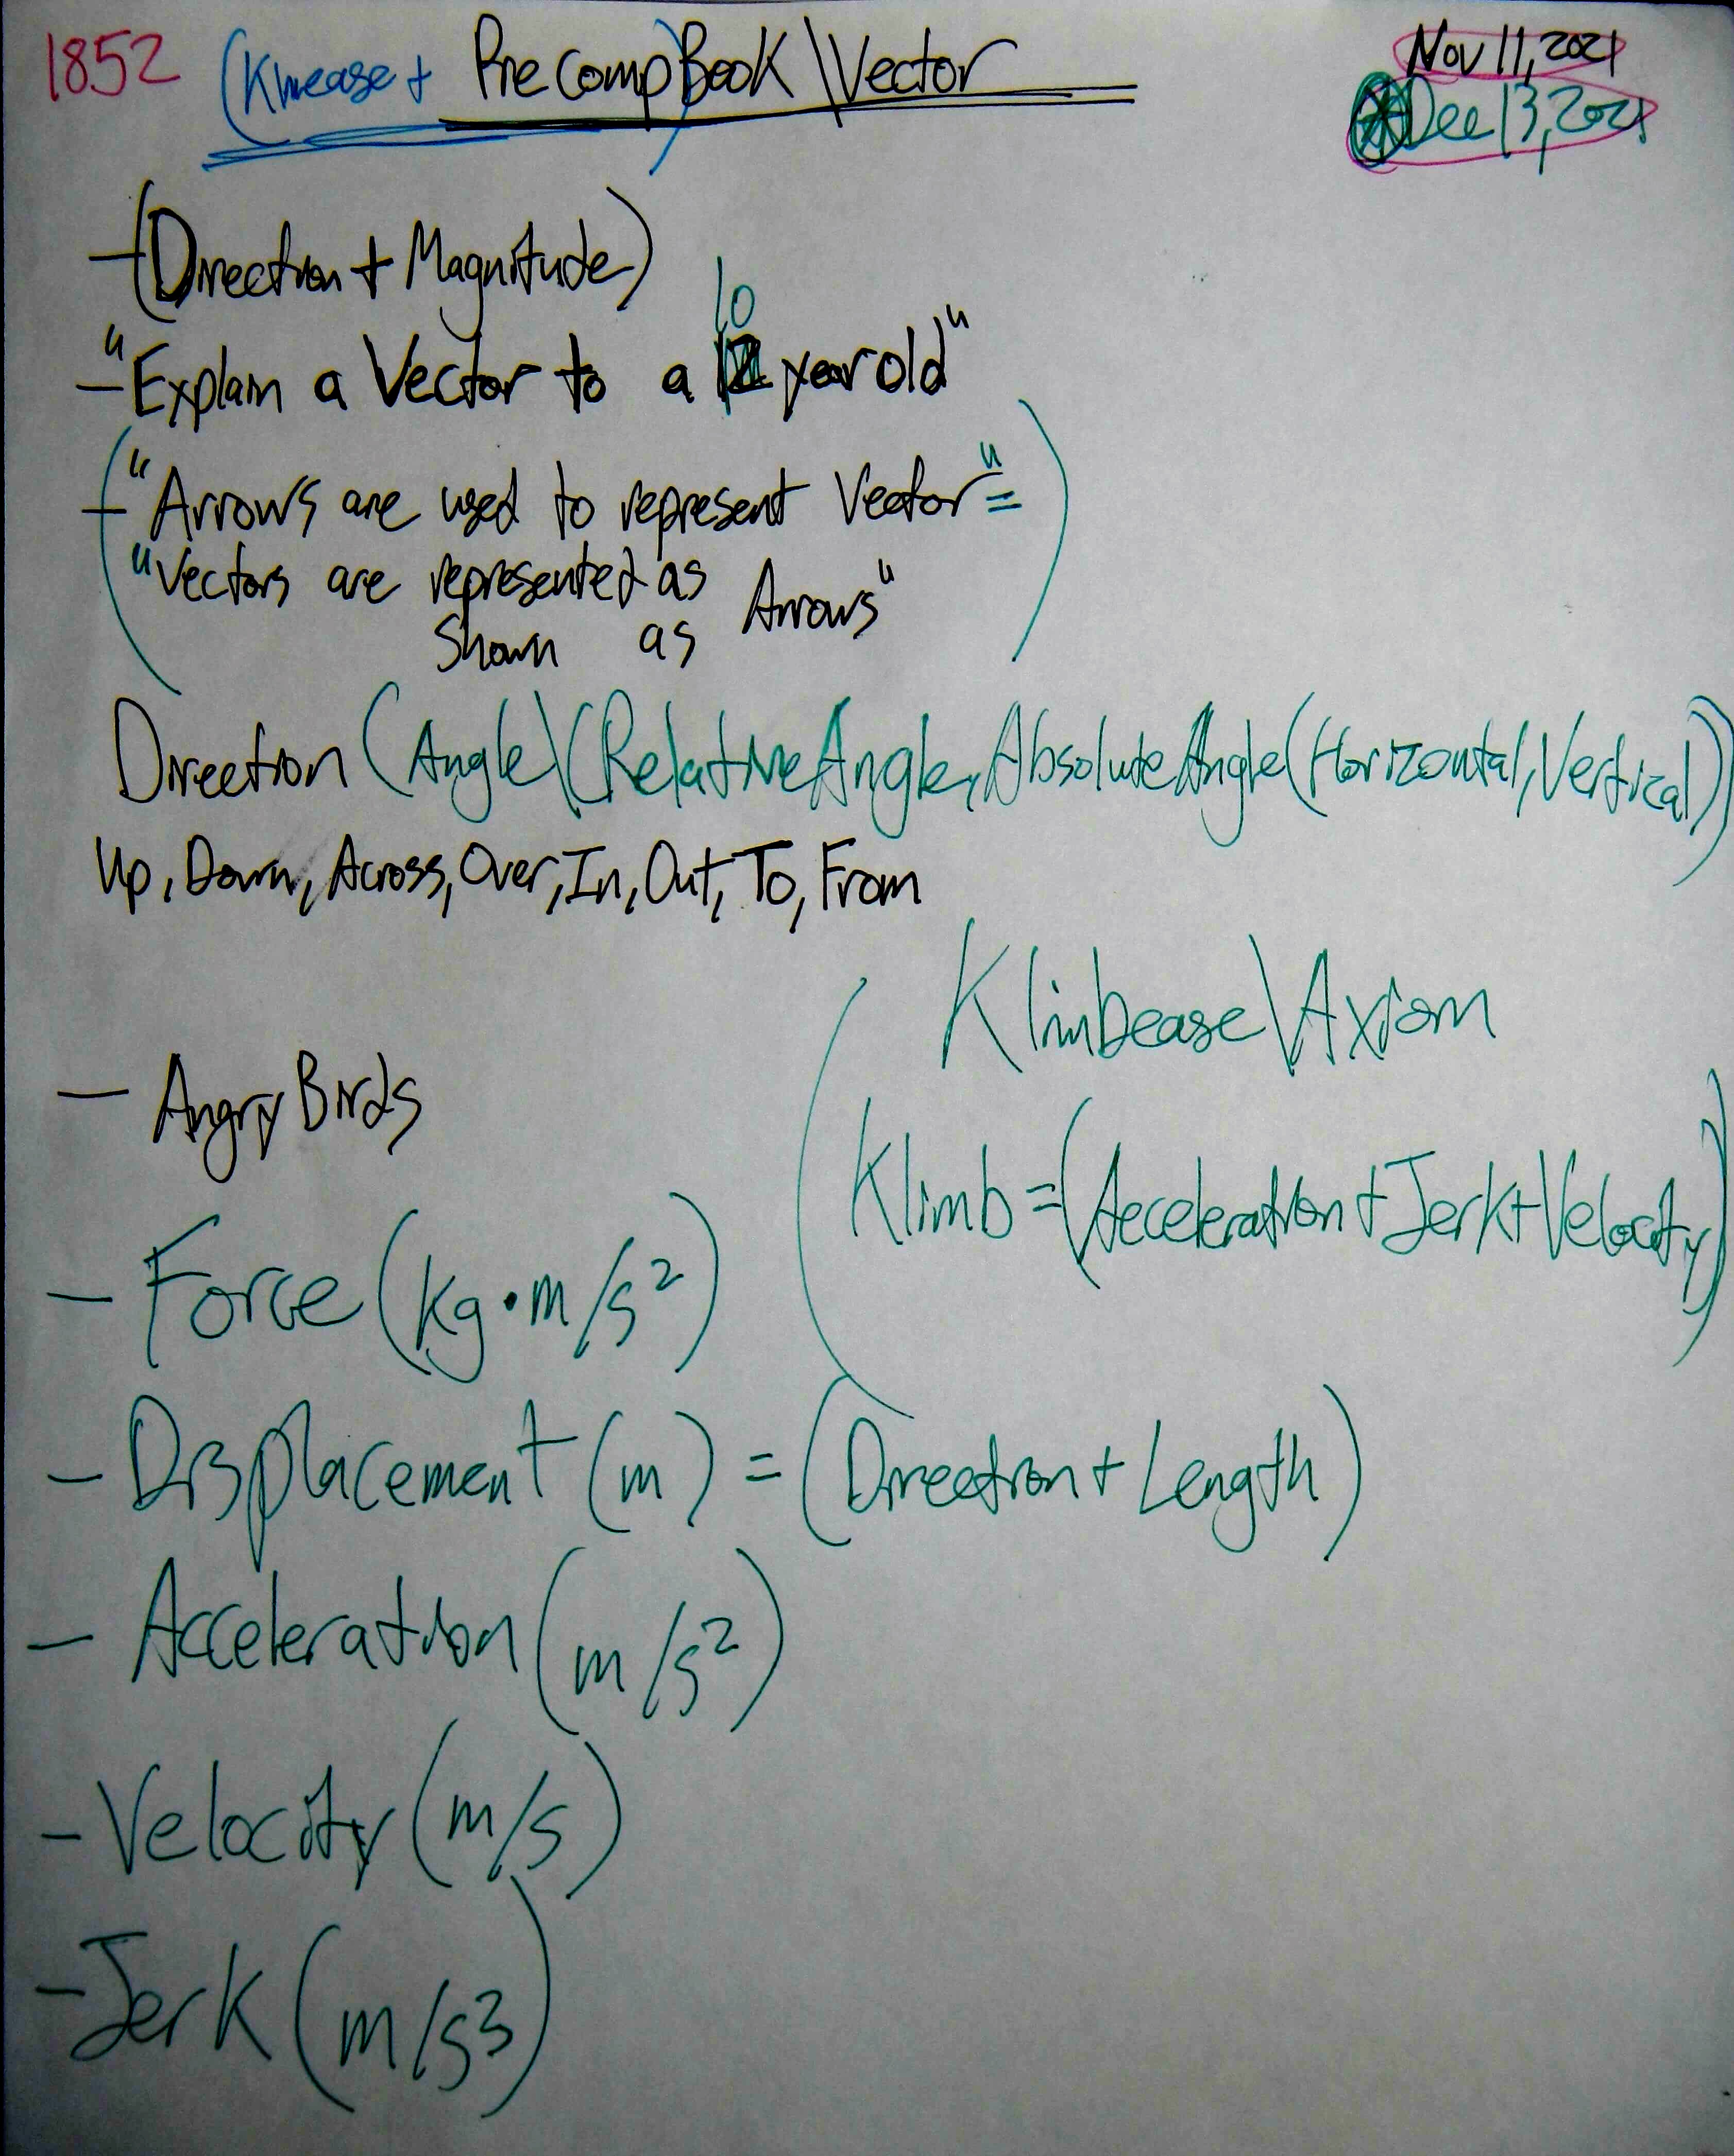 1852 (Knease + PreComp)Book\Vector
Nov 11, 2021
Dec 13, 2021
-(Direction + Magnitude)
10
-"Explain a Vector to a 12 year old"
-("Arrows are used to represent Vector" =
"Vectors are represented as Arrows"
Shown as)
Direction (Angle\(RelativeAngle, AbsoluteAngle(Horizontal, Vertical))
Up, Down, Across, Over, In, Out, To, From
(Klimbease\Axiom
- Angry Birds
Klimb = (Acceleration + Jerk + Velocity)
- Force (kg·m/s²)
- Displacement (m) = (Direction + Length)
- Acceleration (m/s²)
- Velocity (m/s)
- Jerk (m/s³)